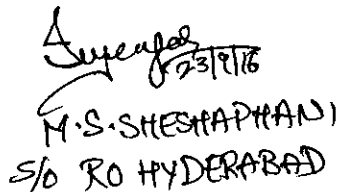 23/9/16
M.S.SHESHAPHANI
S/O RO HYDERABAD